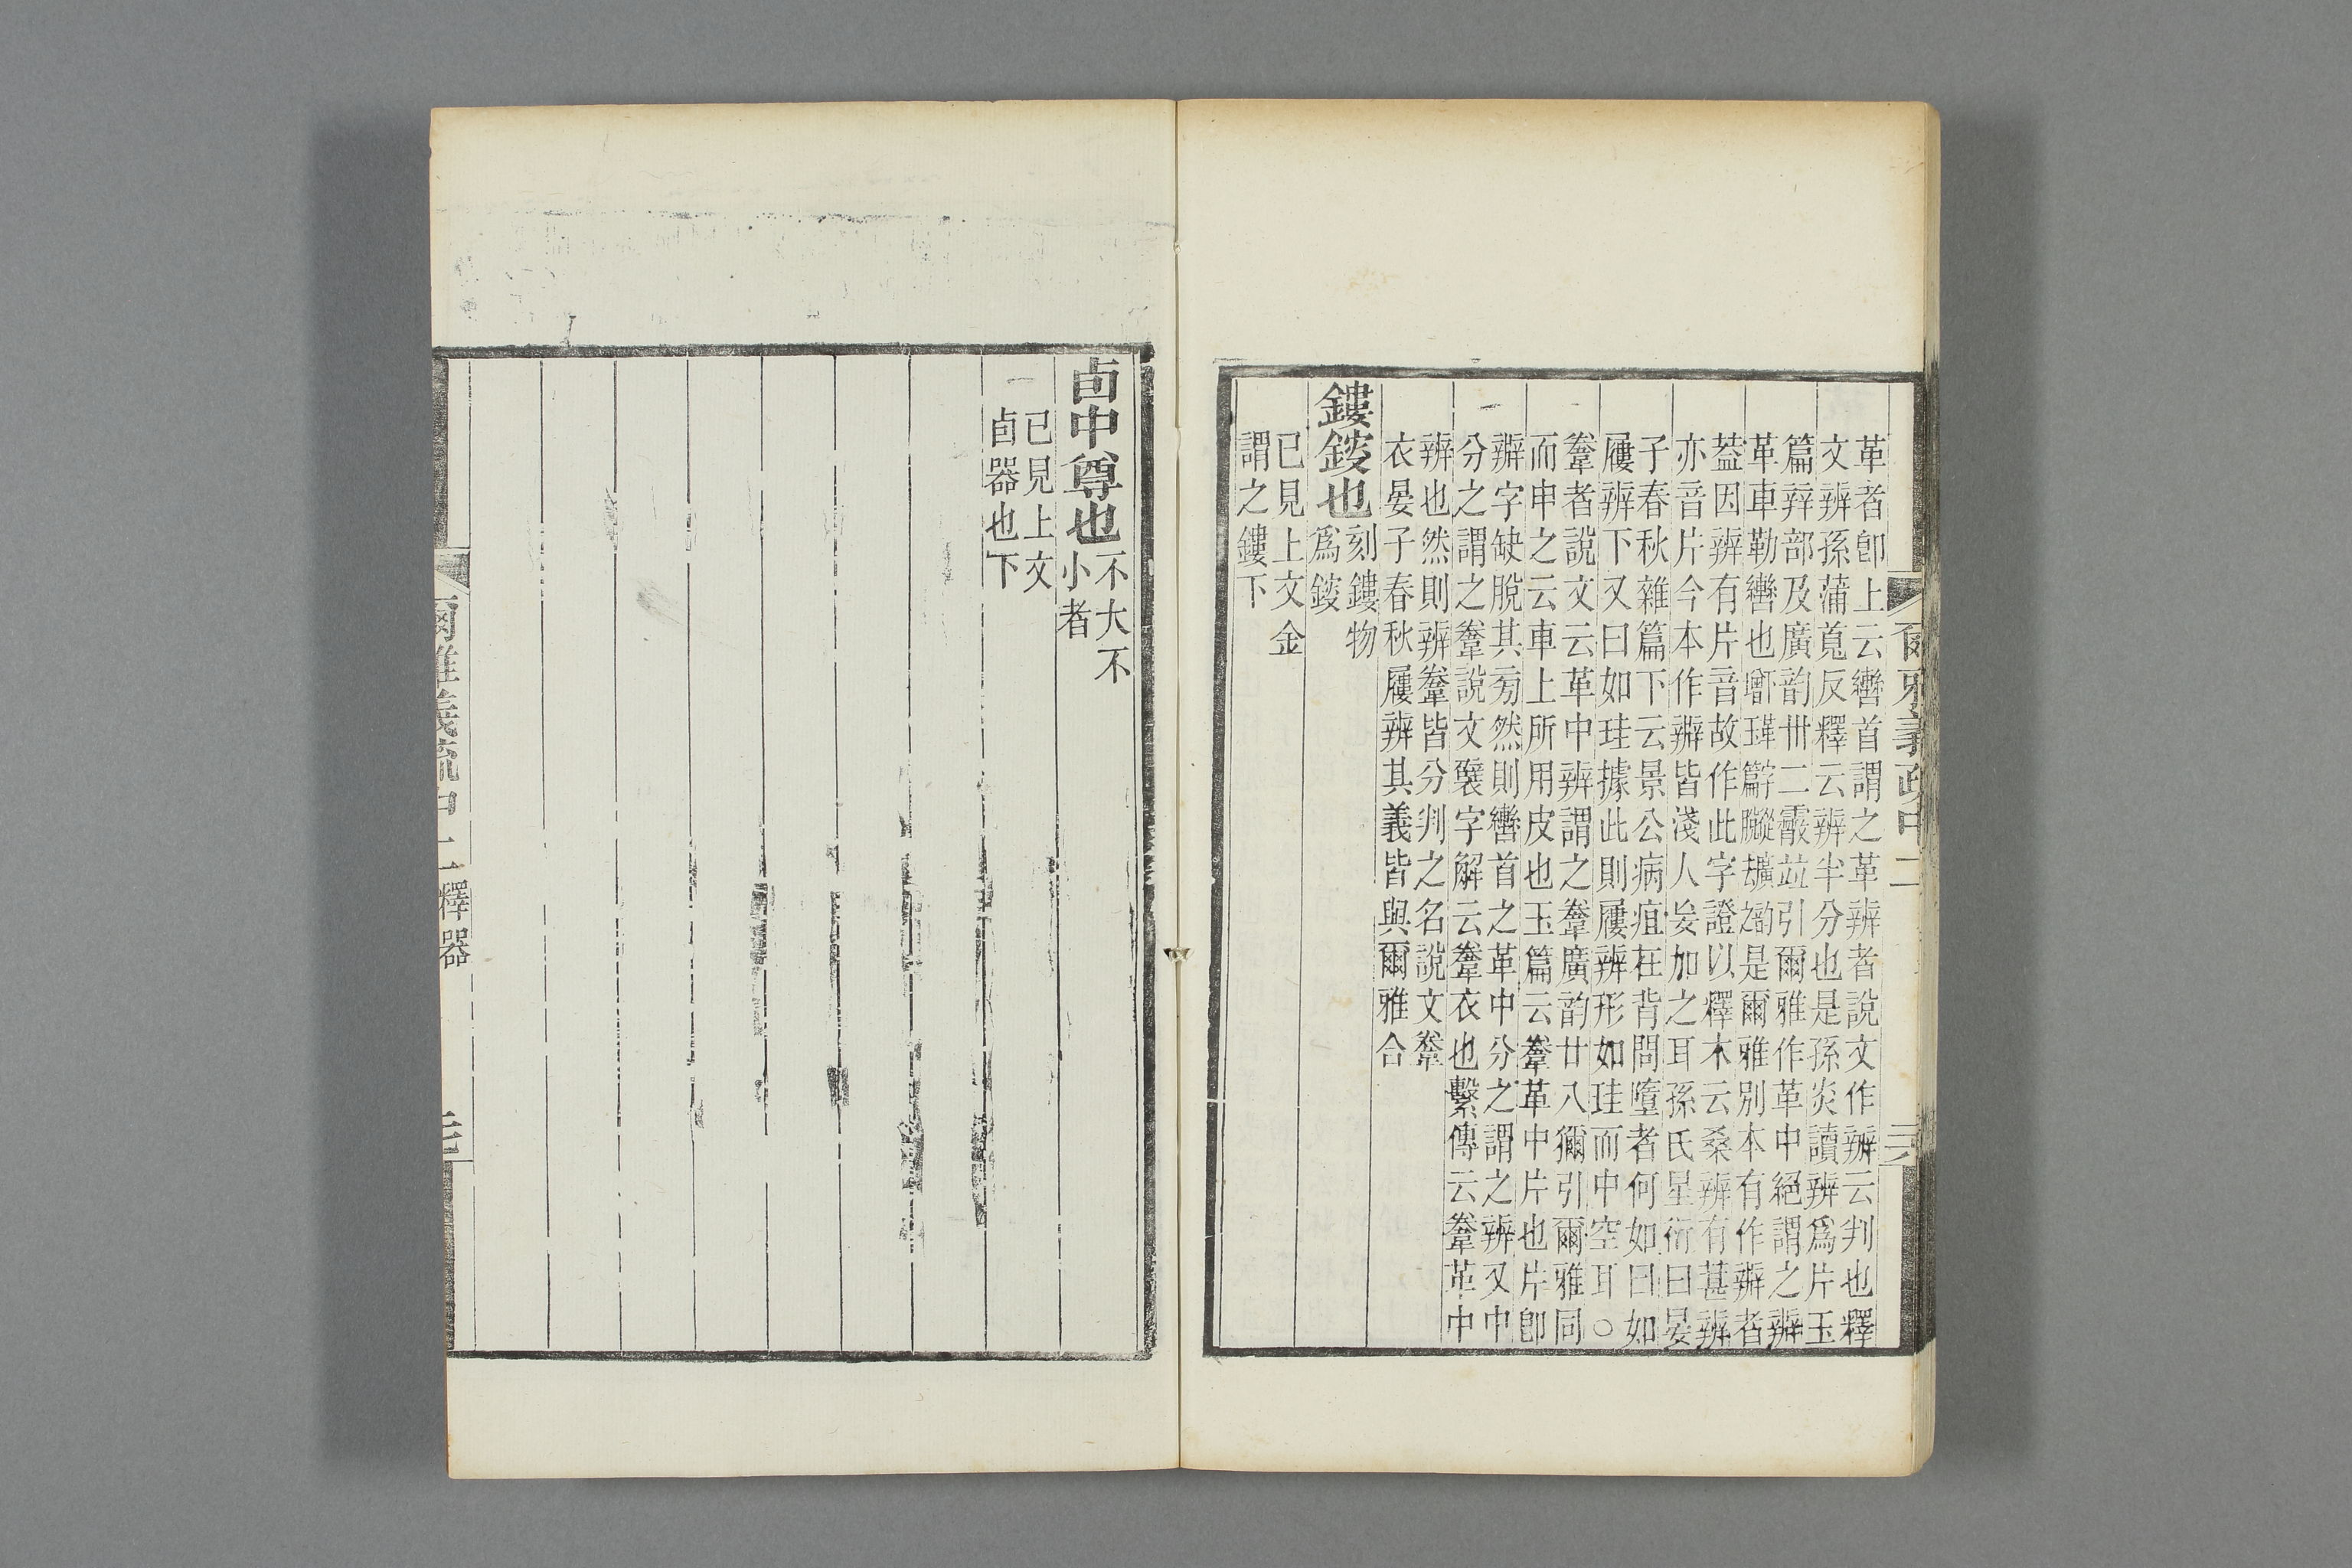 爾雅義疏中二
革者卽上云轡首謂之革辨者說文作辦云判也釋
文辨孫蒲莧反釋云辨半分也是孫炎讀辨爲片玉
篇辡部及廣韵卌二霰竝引爾雅作革中絕謂之辦
革車勒轡也之韵是爾雅別本有作辦者
葢因辨有片音故作此字證以釋木云桑辨有葚辨
亦音片今本作辦皆淺人妄加之耳孫氏星衍曰晏
子春秋雜篇下云景公病疽在背問墮者何如曰如
屨辨下又曰如珪據此則屨辨形如珪而中空耳○
鞶者說文云革中辨謂之鞶廣韵廿八獮引爾雅同
而申之云車上所用皮也玉篇云鞶革中片也片卽
辦字缺脫其㫄然則轡首之革中分之謂之辨又中
分之謂之鞶說文襞字解云鞶衣也繫傳云鞶革中
辨也然則辨鞶皆分判之名說文鞶
衣晏子春秋屨辨其義皆與爾雅合
鏤錽也
刻鏤物
爲錽
已見上文金
謂之鏤下
卣中尊也
不大不
小者
已見上文
卣器也下
爾雅義疏中二 釋器